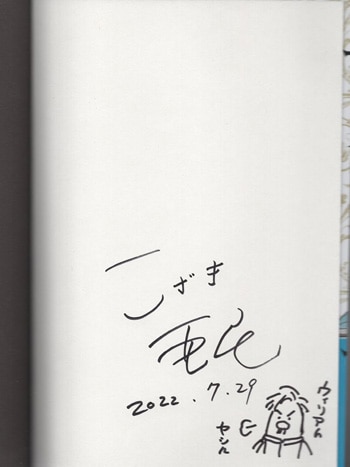 こざき
亜衣
2022.7.29
ウィリアム
セシル